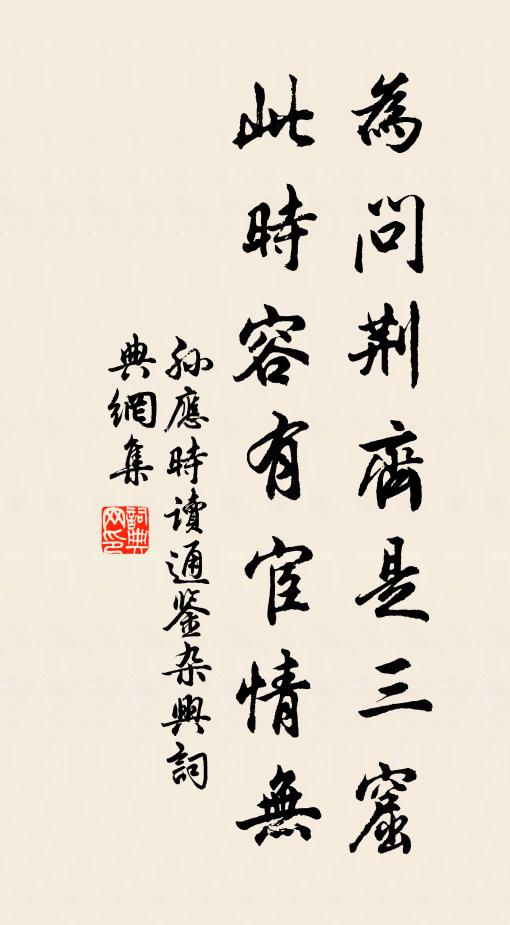 為問荆齊是三窟
此時容有宦情無
孫應時讀通鉴杂興詞
典網集
詞典
网印